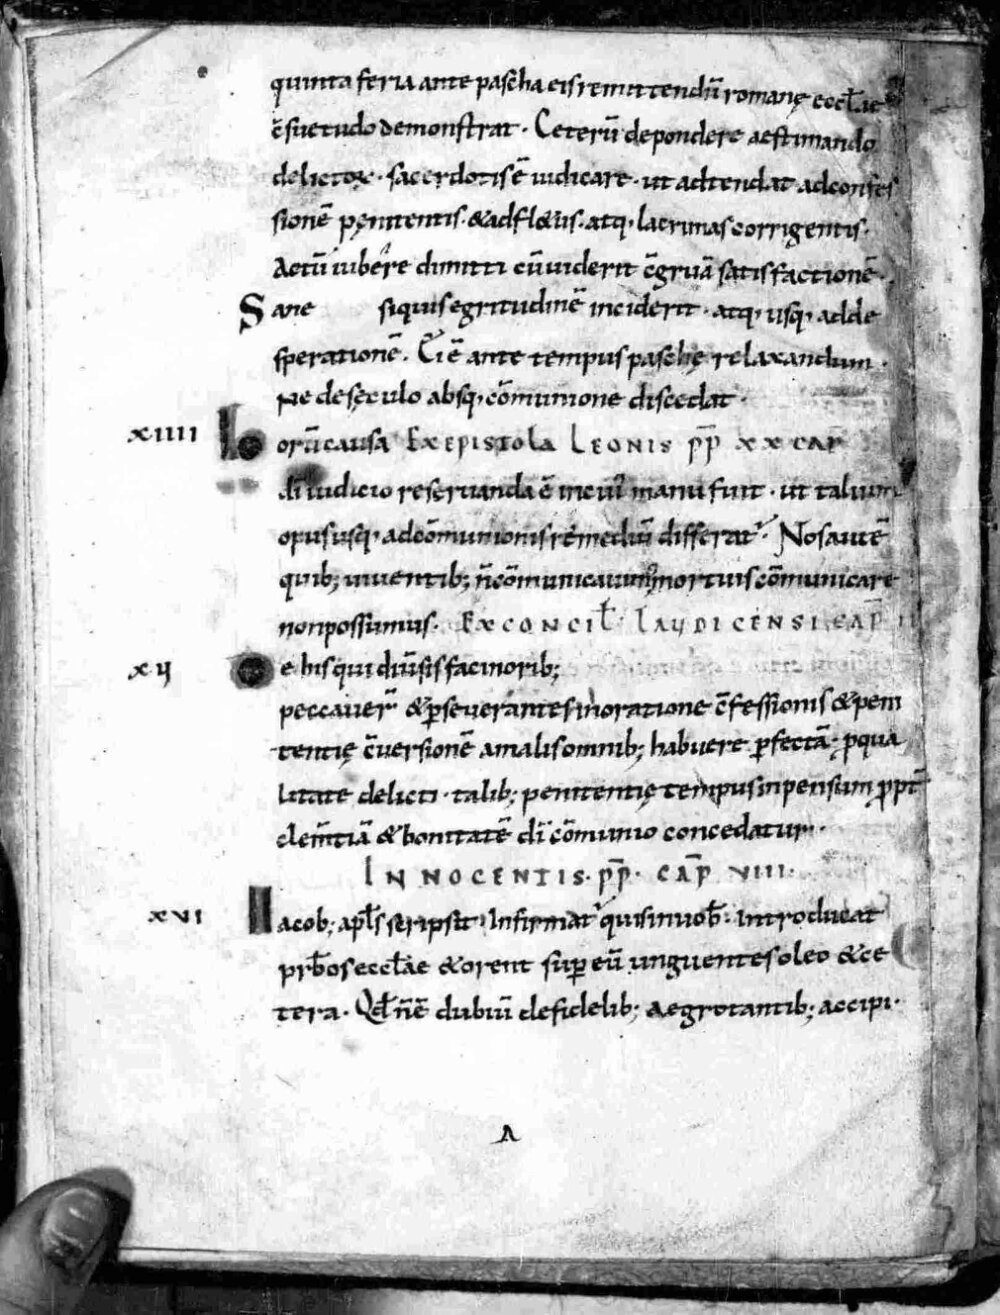 quinta feria ante pascha eis remittendū romanę eccłie
c̄suetudo demonstrat. Ceterū depondere aestimando
delictoꝝ. sacerdotis ē iudicare. ut adtendat adconfes
sionē penitentis. &adfl&us. atq; lacrimas corrigentis.
Actū iubere dimitti cū uiderit c̄gruā satisfactionē.
Sane siquis egritudinē inciderit. atq; usq; adde
sperationē. Ei ē ante tempus paschę relaxandum.
Ne desęculo absq; cōmunione discedat.
xıııı horū causa EX EPISTOLA LEONIS PP̄ XX CAP̄
dī iudicio reseruanda ē incuī manu fuit. ut talium
opus usq; adcōmunionis remediū differat᷑. Nos autē
quib; uiuentib; n̄ cōmunicauim᷒ mortuis cōmunicare
nonpossumus. EX CONCIŁ LAUDICENSI CAP̄ II
xv De hisqui diūsis facinorib;
peccauer̄ &ꝑseuerantes inoratione c̄fessionis &peni
tentię c̄uersionē amalis omnib; habuere ꝑfectā. pqua
litate delicti. talib; penitentię tempus inpensum ꝓpt̄
clem̄tiā &bonitatē dī cōmunio concedatur.
INNOCENTIS. PP̄. CAP̄ VIII.
xvı Iacob; apłs scripsit. Infirmat᷑ quis inuob̄. introducat
prb̄os eccłae &orent suꝑ eū unguentes oleo &ce
tera. Qđ n̄ ē dubiū defidelib; aegrotantib; accipi.
Λ